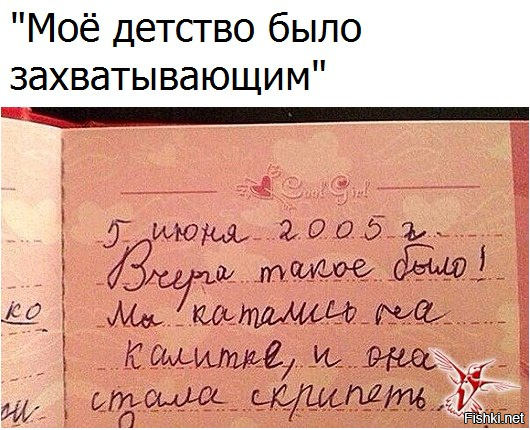 "Моё детство было
захватывающим"
Cool Girl
5 июня 2005 г.
Вчера такое было!
Мы катались на
ко
калитке, и она
стала скрипеть.
Fishki.net